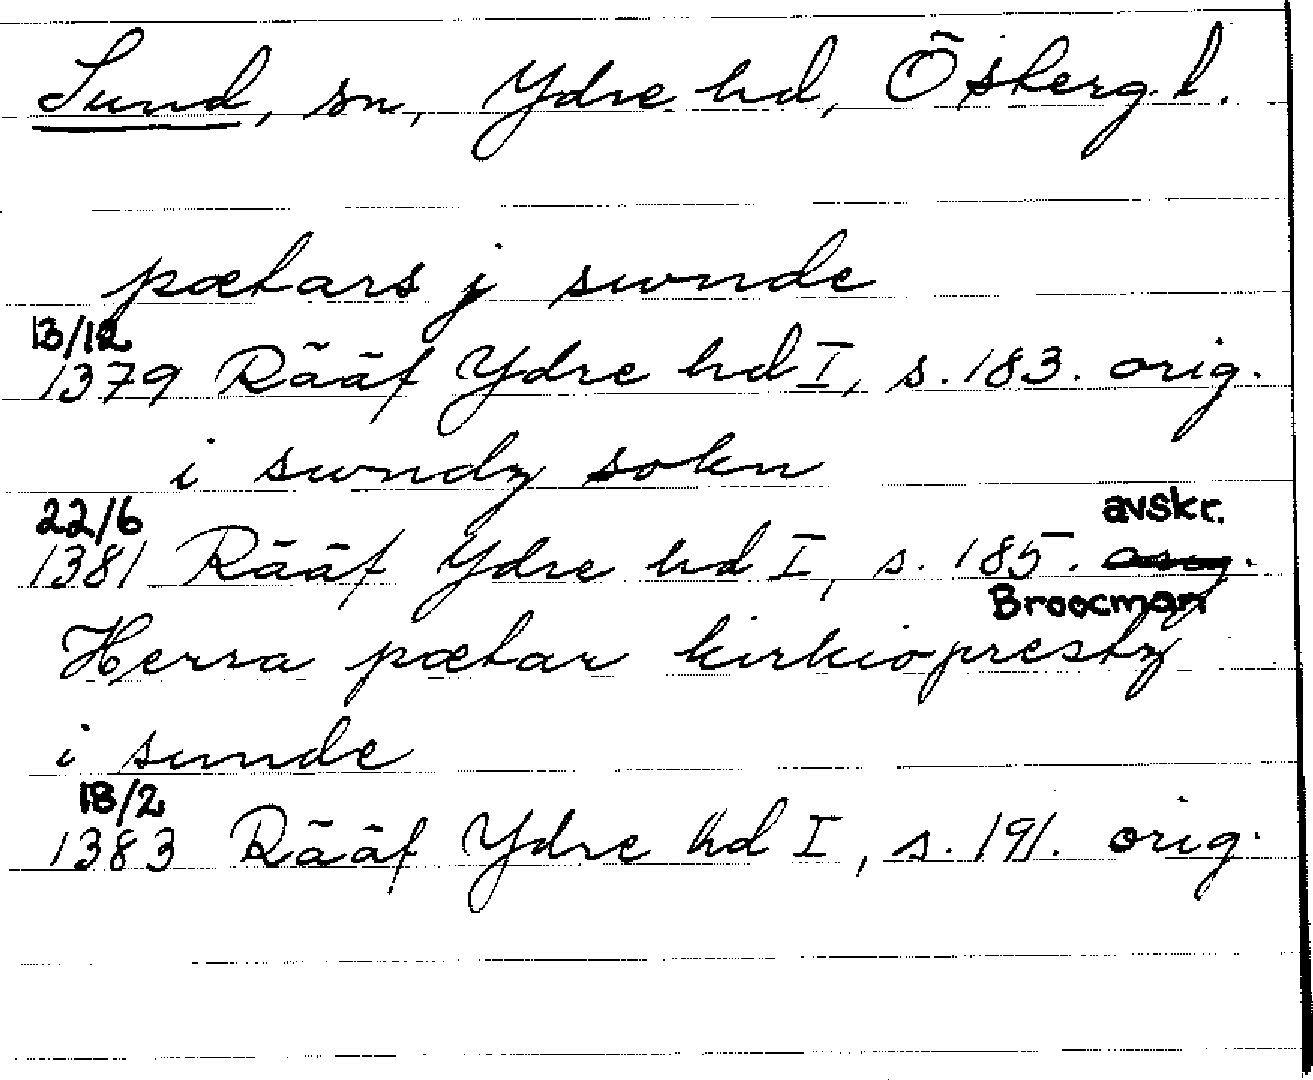 Sund, sn, Ydre hd, Österg. l.
pætars j swnde
13/12
1379 Rääf Ydre hd I, s. 183. orig.
i swndz sokn
22/6 avskr.
1381 Rääf Ydre hd I, s. 185. orig.
Broocman
Herra pætar kirkioprestz
i sunde
18/2
1383 Rääf Ydre hd I, s. 191. orig.